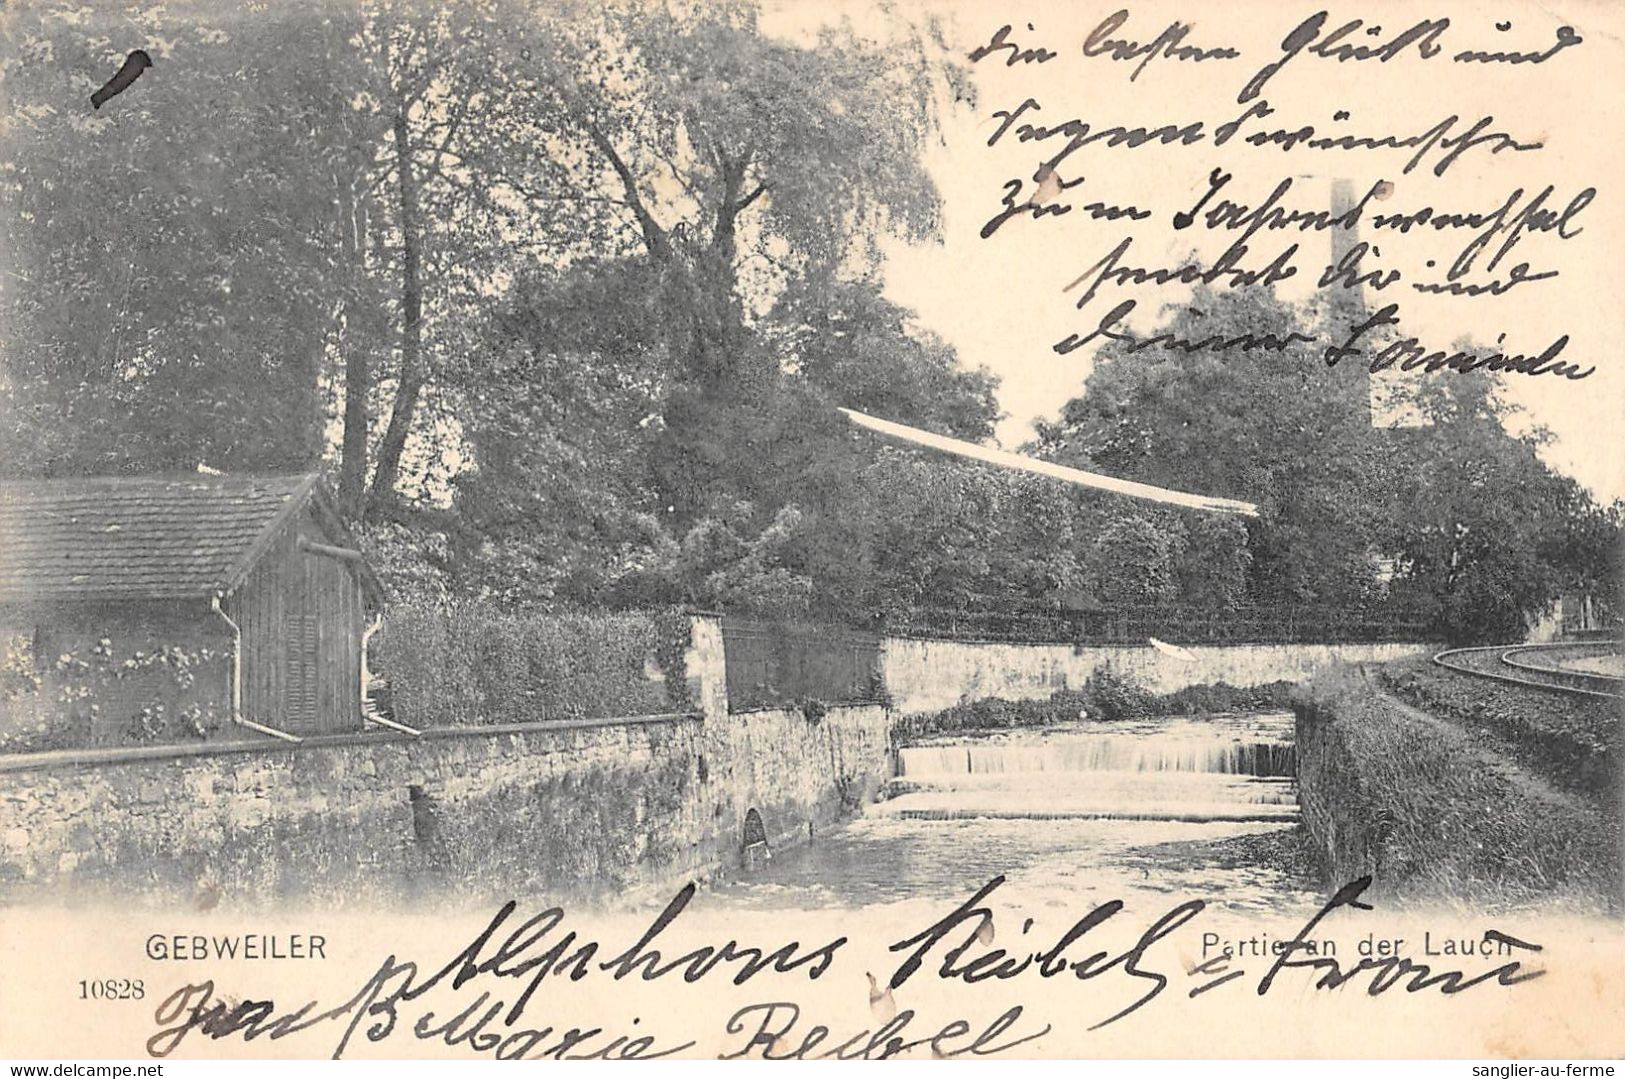 die besten Glück und
Segenswünsche
zum Jahreswechsel
sendet dir und
deiner Familie
GEBWEILER
Partie an der Lauch
10828
Alphons Reibel & Frau
Marie Reibel
delcampe.net
sanglier-au-ferme